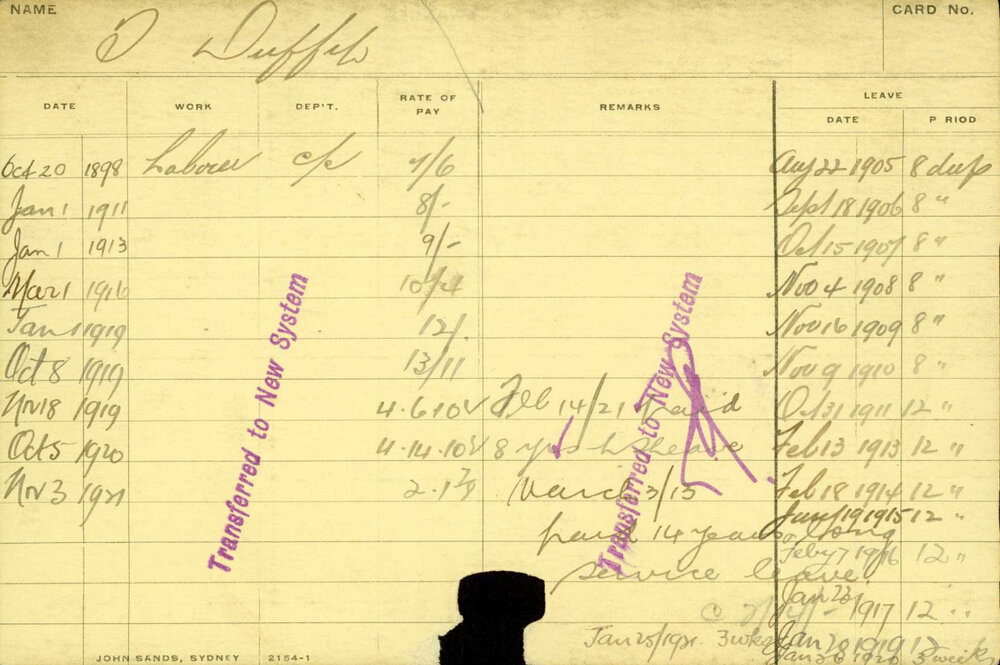 NAME
CARD No.
DATE WORK DEP'T. RATE OF PAY REMARKS LEAVE
DATE P RIOD
Oct 20 1898 Labourer c/c 7/6 Aug 22 1905 8 days
Jan 1 1911 8/- Sept 18 1906 8 "
Jan 1 1913 9/- Oct 15 1907 8 "
Mar 1 1916 10/4 Nov 4 1908 8 "
Jan 1 1919 12/- Nov 16 1909 8 "
Oct 8 1919 13/11 Nov 9 1910 8 "
Nov 18 1919 4.6.10 Feb 14/21 paid Oct 31 1911 12 "
Oct 5 1920 4.14.10 8 yrs Feb 13 1913 12 "
Nov 3 1921 March 3/15 Feb 18 1914 12 "
Jany 19 1915 12 "
paid 14 years long
Feby 7 1916 12 "
service leave
Jan 23 1917 12 "
Jan 25/1921. 3 wks
Jan 1919 12
Jan 1920 3 weeks
Transferred to New System
Transferred to New System
JOHN SANDS, SYDNEY 2154-1